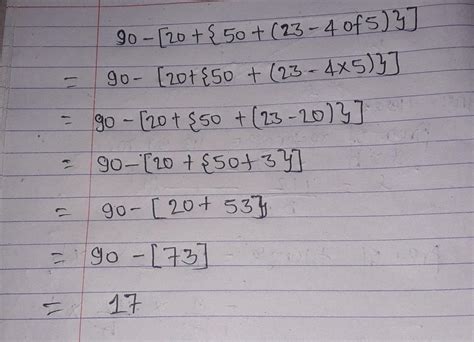 90-[20+{50+(23-4of5)}]
= 90-[20+{50+(23-4×5)}]
= 90-[20+{50+(23-20)}]
= 90-[20+{50+3}]
= 90-[20+53}]
= 90-[73]
= 17